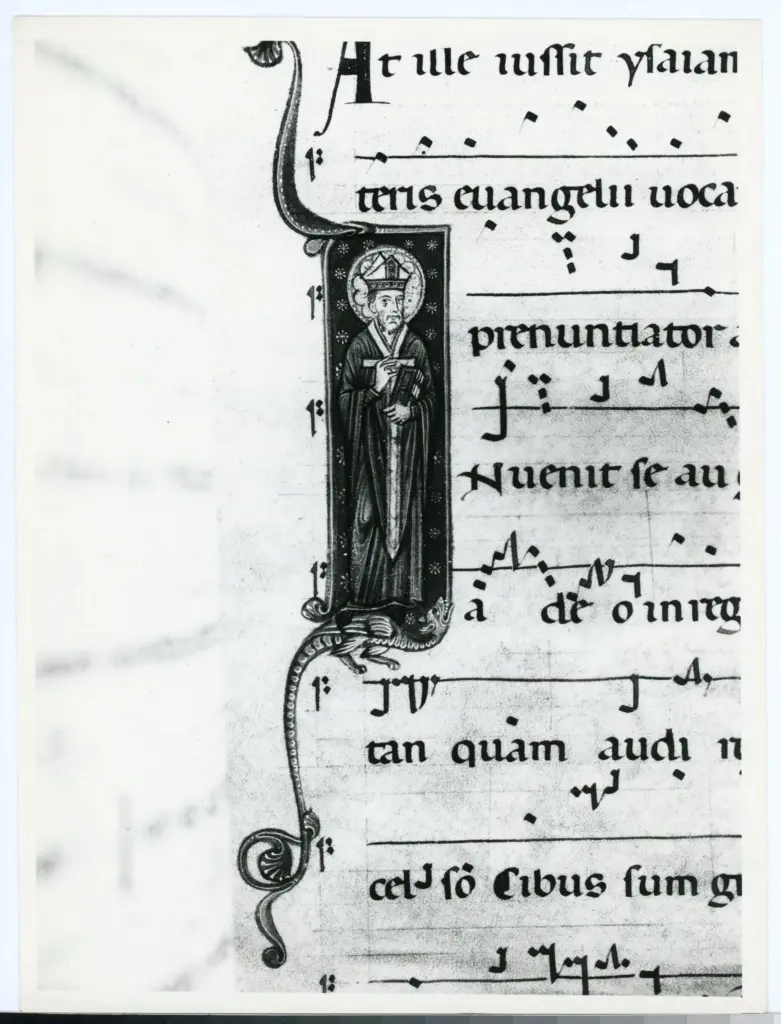 At ille iussit ysaian
teris euangelii uoca
prenuntiator
Nuenit se au
a dē o in reg
tan quam audi
cel so Cibus sum